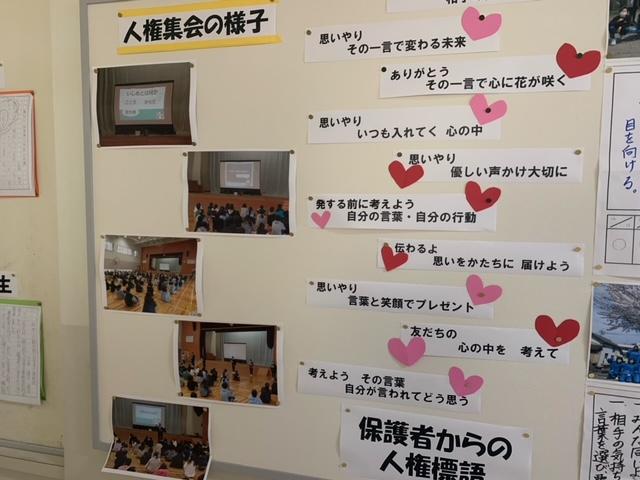 人権集会の様子
いじめとは何か
思いやり
その一言で変わる未来
ありがとう
その一言で心に花が咲く
思いやり
いつも入れてく 心の中
思いやり
優しい声かけ大切に
発する前に考えよう
自分の言葉・自分の行動
伝わるよ
思いをかたちに 届けよう
思いやり
言葉と笑顔でプレゼント
友だちの
心の中を 考えて
考えよう その言葉
自分が言われてどう思う
保護者からの
人権標語
目を向ける。
生
一、相手の気持ち
言葉を選び